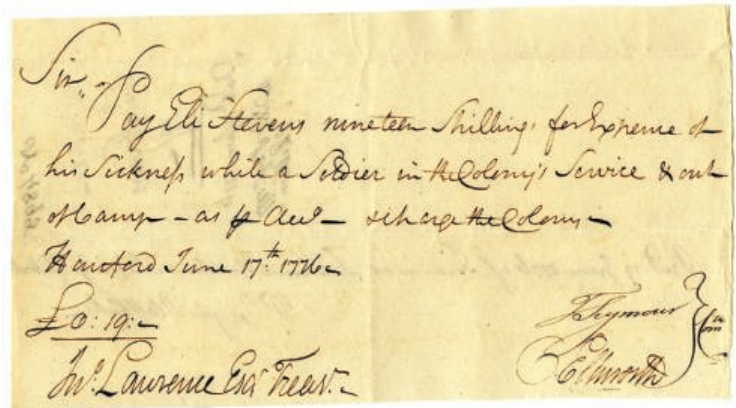 Sir,
Pay Eli Stevens nineteen Shillings for Expence of
his Sickness while a Soldier in the Colony's Service & out
of Camp – as p Acct – & charge the Colony –
Hartford June 17th 1776 –
£0:19:–
T Seymour
Ellsworth
Jno. Lawrence Esqr Treasr. –